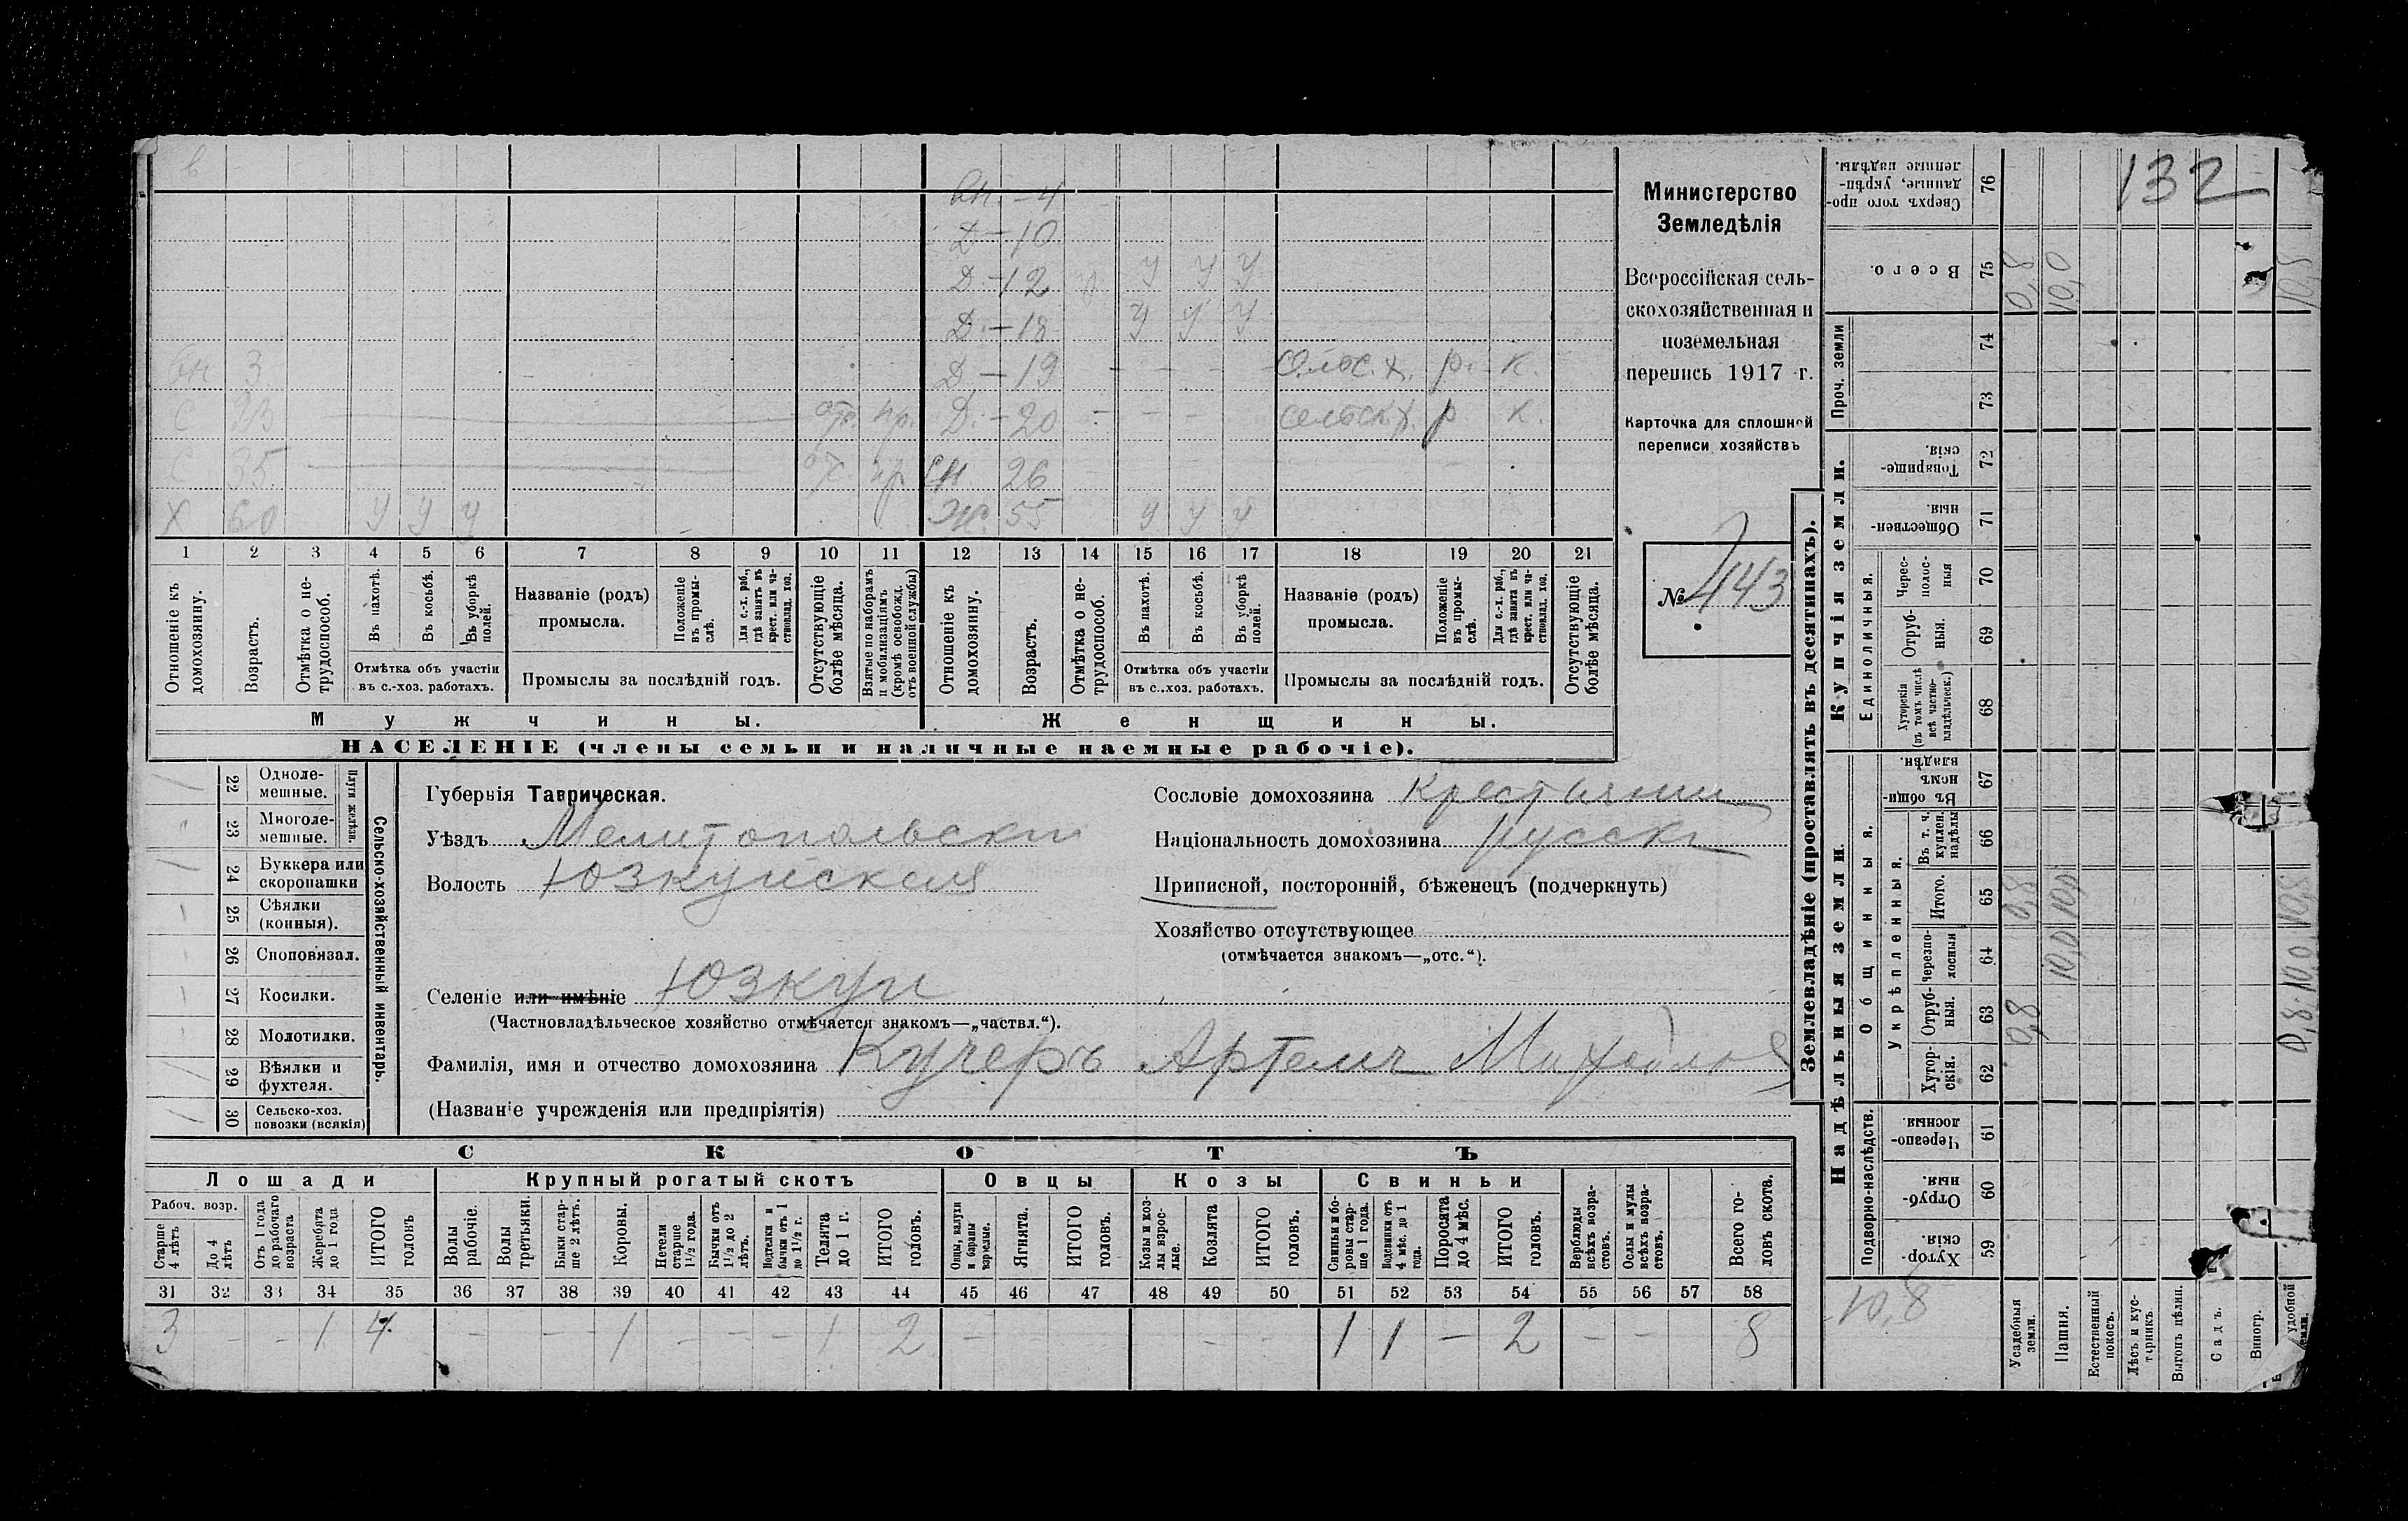 132
Министерство
Земледѣлія
Всероссійская сель-
скохозяйственная и
поземельная
перепись 1917 г.
Карточка для сплошной
переписи хозяйствъ
№ 443
вн. — 4
Д — 10
Д. — 12 У У У
Д. — 18 У У У
вн 3 Д — 19 - - - сельс. х. р. к.
С 33 от. пр. Д. — 20 - - - сельск. х. р к.
С 35 от. пр. сн. 26
Х 60 У У У Ж. 55 У У У
1 2 3 4 5 6 7 8 9 10 11 12 13 14 15 16 17 18 19 20 21
Отношеніе къ домохозяину.
Возрастъ.
Отмѣтка о не-трудоспособ.
Въ пахотѣ.
Въ косьбѣ.
Въ уборкѣ полей.
Отмѣтка объ участіи
въ с.-хоз. работахъ.
Названіе (родъ)
промысла.
Положеніе въ промы-слѣ.
Для с.-х. раб., гдѣ занятъ въ крест. или ча-стновлад. хоз.
Промыслы за послѣдній годъ.
Отсутствующіе болѣе мѣсяца.
Взятые по наборамъ и мобилизаціямъ (кромѣ освобожд. отъ военной службы)
Отношеніе къ домохозяину.
Возрастъ.
Отмѣтка о не-трудоспособ.
Въ пахотѣ.
Въ косьбѣ.
Въ уборкѣ полей.
Отмѣтка объ участіи
въ с.-хоз. работахъ.
Названіе (родъ)
промысла.
Положеніе въ промы-слѣ.
Для с.-х. раб., гдѣ занята въ крест. или ча-стновлад. хоз.
Промыслы за послѣдній годъ.
Отсутствующіе болѣе мѣсяца.
Мужчины. Женщины.
НАСЕЛЕНІЕ (члены семьи и наличные наемные рабочіе).
Сельско-хозяйственный инвентарь.
Плуги желѣзн.
22 Одноле-мешные.
23 Многоле-мешные.
24 Буккера или скоропашки
25 Сѣялки (конныя).
26 Сноповязал.
27 Косилки.
28 Молотилки.
29 Вѣялки и фухтеля.
30 Сельско-хоз. повозки (всякія)
Губернія Таврическая.
Уѣздъ Мелитопольскій
Волость Юзкуйская
Селеніе или имѣніе Юзкуи
(Частновладѣльческое хозяйство отмѣчается знакомъ—„частвл.“).
Фамилія, имя и отчество домохозяина Кучеръ Артемъ
(Названіе учрежденія или предпріятія)
Сословіе домохозяина Крестьянин
Національность домохозяина русскі
Приписной, посторонній, бѣженецъ (подчеркнуть)
Хозяйство отсутствующее
(отмѣчается знакомъ—„отс.“).
СКОТЪ
Лошади Крупный рогатый скотъ Овцы Козы Свиньи
Рабоч. возр.
Старше 4 лѣтъ
До 4 лѣтъ
Отъ 1 года до рабочаго возраста
Жеребята до 1 года
ИТОГО головъ
Волы рабочіе.
Волы третьяки.
Быки стар-ше 2 лѣтъ.
Коровы.
Нетели старше 1½ года.
Бычки отъ 1½ до 2 лѣтъ.
Подтелки и бычки отъ 1 до 1½ г.
Телята до 1 г.
ИТОГО головъ.
Овцы, валухи и бараны взрослые.
Ягнята.
ИТОГО головъ.
Козы и коз-лы взрос-лые.
Козлята
ИТОГО головъ.
Свиньи и бо-ровы стар-ше 1 года.
Подсвинки отъ 4 мѣс. до 1 года.
Поросята до 4 мѣс.
ИТОГО головъ.
Верблюды всѣхъ возра-стовъ.
Ослы и мулы всѣхъ возра-стовъ.
Всего го-ловъ скота.
31 32 33 34 35 36 37 38 39 40 41 42 43 44 45 46 47 48 49 50 51 52 53 54 55 56 57 58
3 - - 1 4 - - - 1 - - - 1 2 - - - 1 1 - 2 - - 8
Землевладѣніе (проставлять въ десятинахъ).
Надѣльныя земли. Купчія земли. Проч. земли
Подворно-наслѣдств.
Общинныя.
Укрѣпленныя.
Единоличныя.
59 Хутор-скія.
60 Отруб-ныя.
61 Черезпо-лосныя.
62 Хутор-скія.
63 Отруб-ныя.
64 Черезпо-лосныя
65 Итого.
66 Въ т. ч. куплен. надѣлы
67 Въ общи-номъ владѣн.
68 Хуторскія (въ томъ числѣ всѣ частно-владѣльческ.)
69 Отруб-ныя.
70 Черес-полос-ныя
71 Обществен-ныя.
72 Товарище-скія.
73
74
75 Всего.
76 Сверхъ того про-данные, укрѣп-ленные надѣлы.
10,8
Усадебныя земли. 0,8 0,8 0,8
Пашня. 10,0 10,0 10,0
Естественный покосъ.
Лѣсъ и кус-тарникъ.
Выгонъ цѣлин.
Садъ.
Виногр.
удобной земли. 0,8 10,0 10,8 10,8